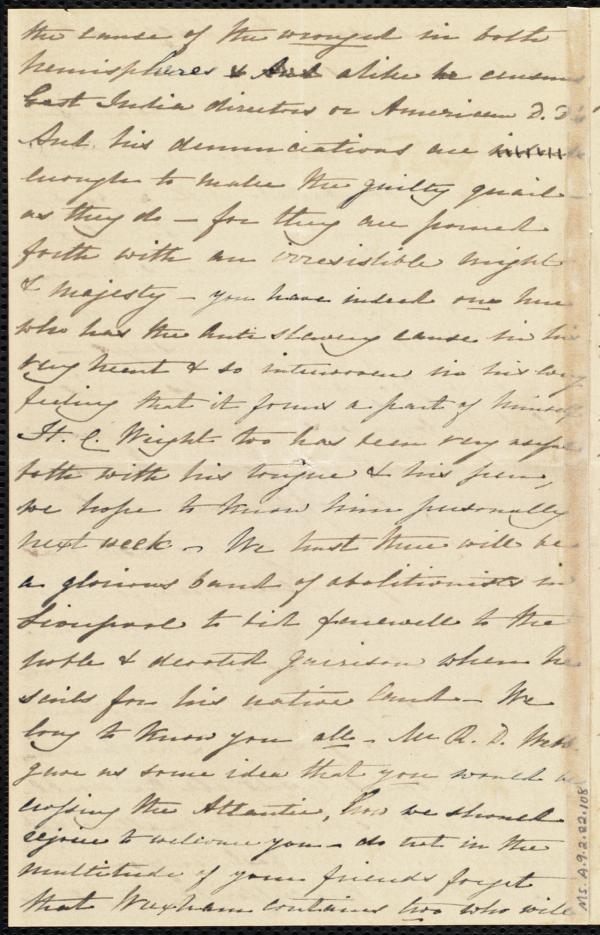 the cause of the wronged in both
hemispheres & alike he censures
East India directors or American D. D's
And his denunciations are
enough to make the guilty quail
as they do – for they are poured
forth with an irresistible might
& majesty – you have indeed one here
who has the Anti slavery cause in his
very heart & so interwoven in his very
feeling that it forms a part of himself
H. C. Wright too has been very
both with his tongue & his pen,
we hope to know him personally
next week – We trust there will be
a glorious band of abolitionists in
Liverpool to bid farewell to the
noble & devoted Garrison when he
sails for his native land – We
long to know you all – Mr R. D. Webb
gave us some idea that you would be
crossing the Atlantic, how we should
rejoice to welcome you – do not in the
multitude of your friends forget
that Wrexham contains two who will
MS. A.9.2.22.108